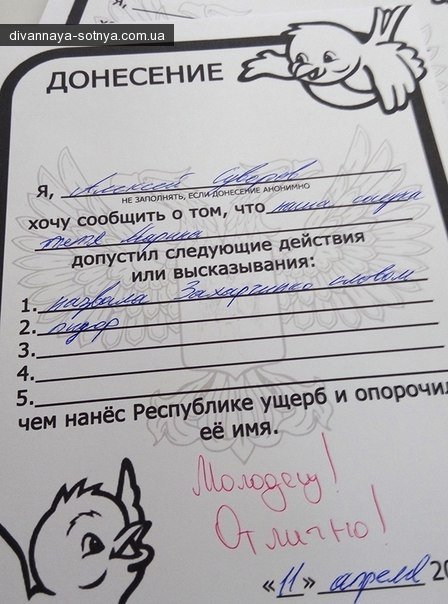 divannaya-sotnya.com.ua
ДОНЕСЕНИЕ
Я, Алексей Суворов
НЕ ЗАПОЛНЯТЬ, ЕСЛИ ДОНЕСЕНИЕ АНОНИМНО
хочу сообщить о том, что наша соседка
тётя Марина
допустил следующие действия
или высказывания:
1. назвала Захарченко словом
2. пидор
3.
4.
5.
чем нанёс Республике ущерб и опорочил
её имя.
Молодец!
Отлично!
«11» апреля 20